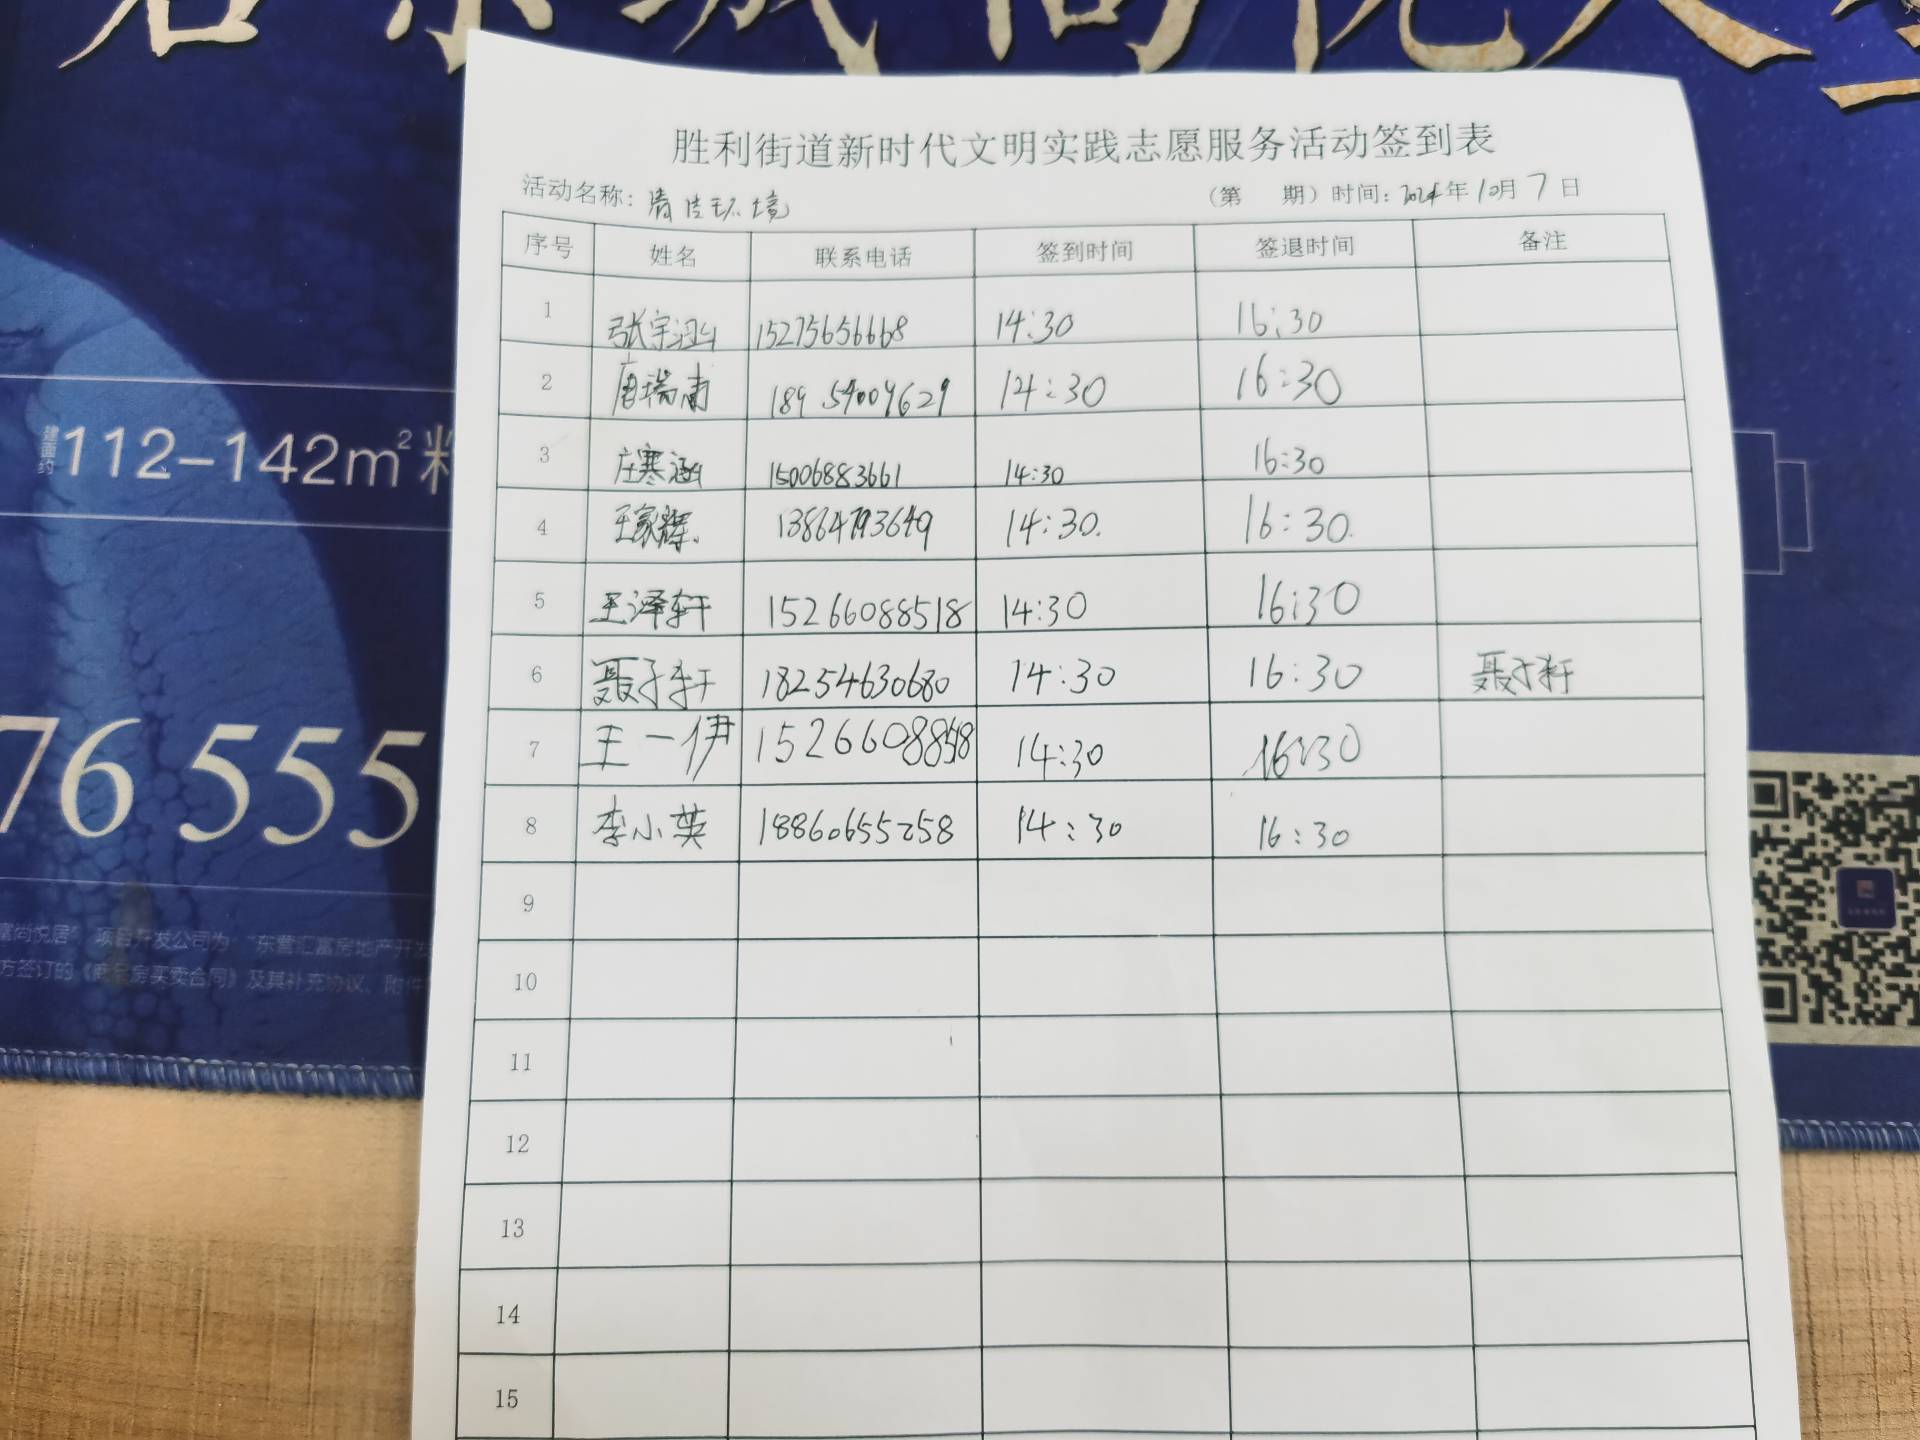 112-142m²
建面约
76 555
富尚悦居” 项目开发公司为 “东营汇富房地产开发
方签订的《商品房买卖合同》及其补充协议、附件
胜利街道新时代文明实践志愿服务活动签到表
活动名称: 清洁环境 (第 期) 时间: 2024年10月7日
序号 姓名 联系电话 签到时间 签退时间 备注
1 张宇涵 15275656668 14:30 16:30
2 唐瑞 14:30 16:30
3 庄寒涵 15006883661 14:30 16:30
4 王家辉. 13864793649 14:30. 16:30.
5 王泽轩 15266088518 14:30 16:30
6 聂子轩 18254630680 14:30 16:30 聂子轩
7 王一伊 15266088518 14:30 16:30
8 李小英 18860655258 14:30 16:30
9
10
11
12
13
14
15